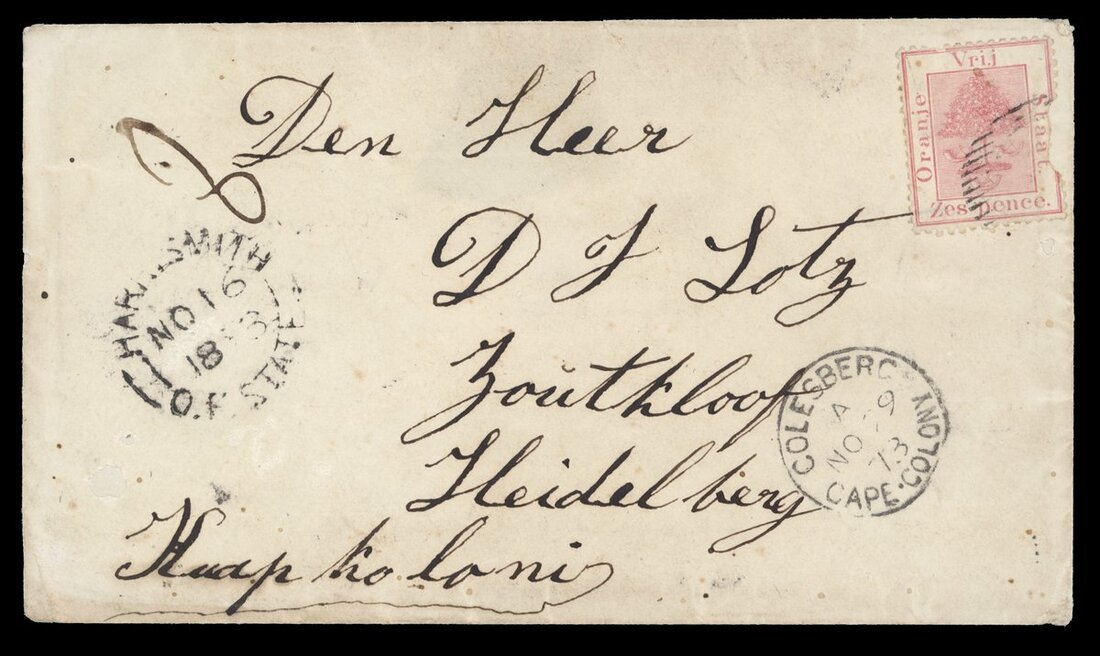 Vrij
Oranje
Staat
Zes pence.
Den Heer
D J Lotz
Zoutkloof
Heidelberg
Kaapkolonie
HARRISMITH
NO 16
18
O.F. STATE
COLESBERG
A 9
NO
73
CAPE·COLONY